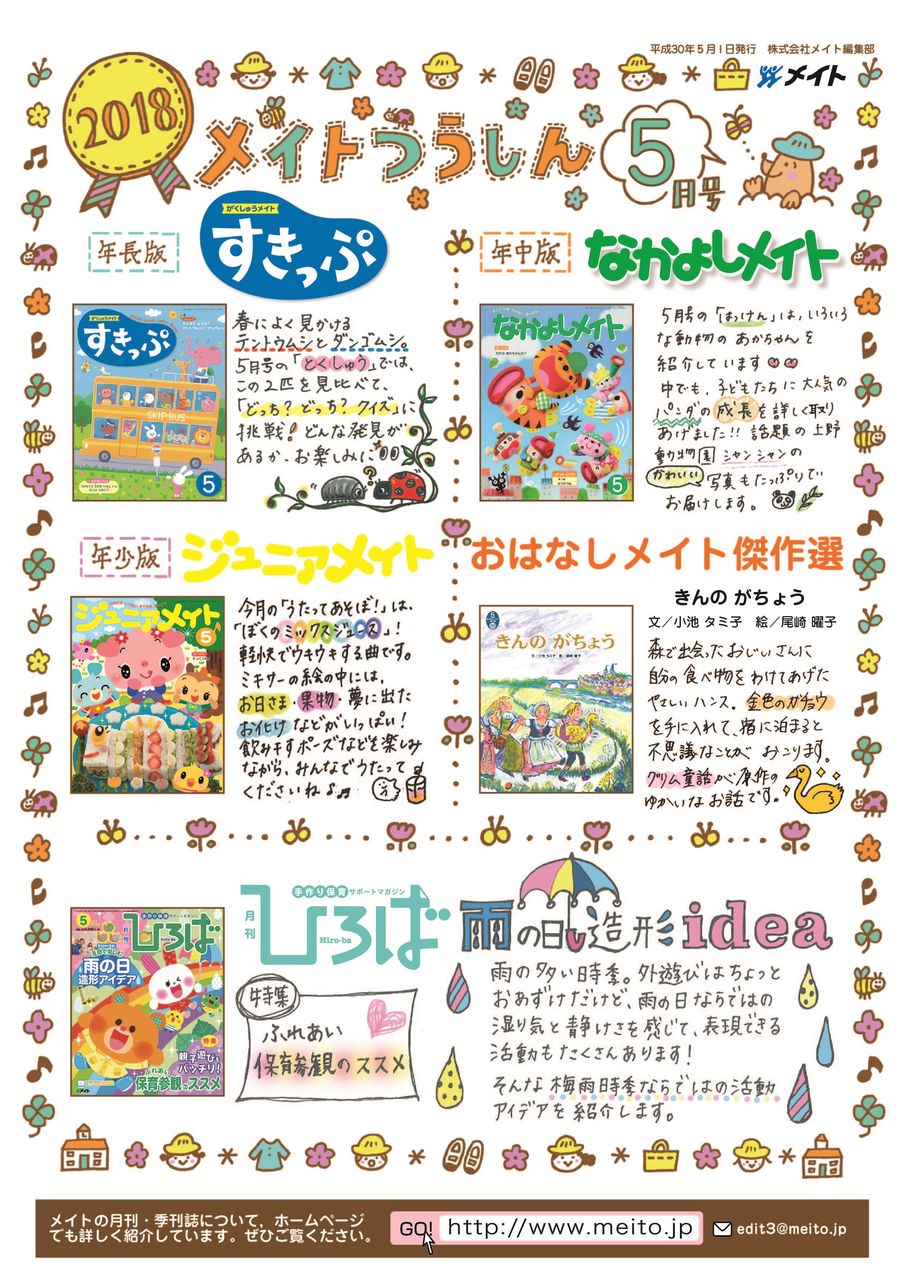 平成30年5月1日発行 株式会社メイト編集部
メイト
2018
メイトつうしん
5
月号
年長版
がくしゅうメイト
すきっぷ
がくしゅうメイト
すきっぷ
SKIP BUS
5
春によく見かける
テントウムシとダンゴムシ。
5月号の「とくしゅう」では、
この2匹を見比べて、
「どっち?どっち?クイズ」に
挑戦!どんな発見が
あるか、お楽しみに
年中版
なかよしメイト
なかよしメイト
5
5月号の「はっけん」は、いろいろ
な動物のあかちゃんを
紹介しています
中でも、子どもたちに大人気の
パンダの成長を詳しく取り
あげました!!話題の上野
動物園シャンシャンの
かわいい写真もたっぷりで
お届けします。
年少版
ジュニアメイト
ジュニアメイト
5
今月の「うたってあそぼ!」は、
「ぼくのミックスジュース」!
軽快でウキウキする曲です。
ミキサーの絵の中には、
お日さま・果物・夢に出た
お化けなどがいっぱい!
飲み干すポーズなどを楽しみ
ながら、みんなでうたって
くださいね♪♬
おはなしメイト傑作選
きんの がちょう
文/小池 タミ子 絵/尾崎 曜子
きんの がちょう
文/小池 タミ子 絵/尾崎 曜子
森で出会ったおじいさんに
自分の食べ物をわけてあげた
やさしいハンス。金色のガチョウ
を手に入れて、宿に泊まると
不思議なことが おこります。
グリム童話が原作の
ゆかいなお話です。
5
手作り保育サポートマガジン
月刊
ひろば
雨の日
造形アイデア
特集
親子遊びも
バッチリ!
ふれあい
保育参観のススメ
手作り保育サポートマガジン
月刊
ひろば
Hiro-ba
特集
ふれあい
保育参観のススメ
雨の日の造形idea
雨の多い時季。外遊びはちょっと
おあずけだけど、雨の日ならではの
湿り気と静けさを感じて、表現できる
活動もたくさんあります!
そんな梅雨時季ならではの活動
アイデアを紹介します。
メイトの月刊・季刊誌について，ホームページ
でも詳しく紹介しています。ぜひご覧ください。
GO!
http://www.meito.jp
edit3@meito.jp